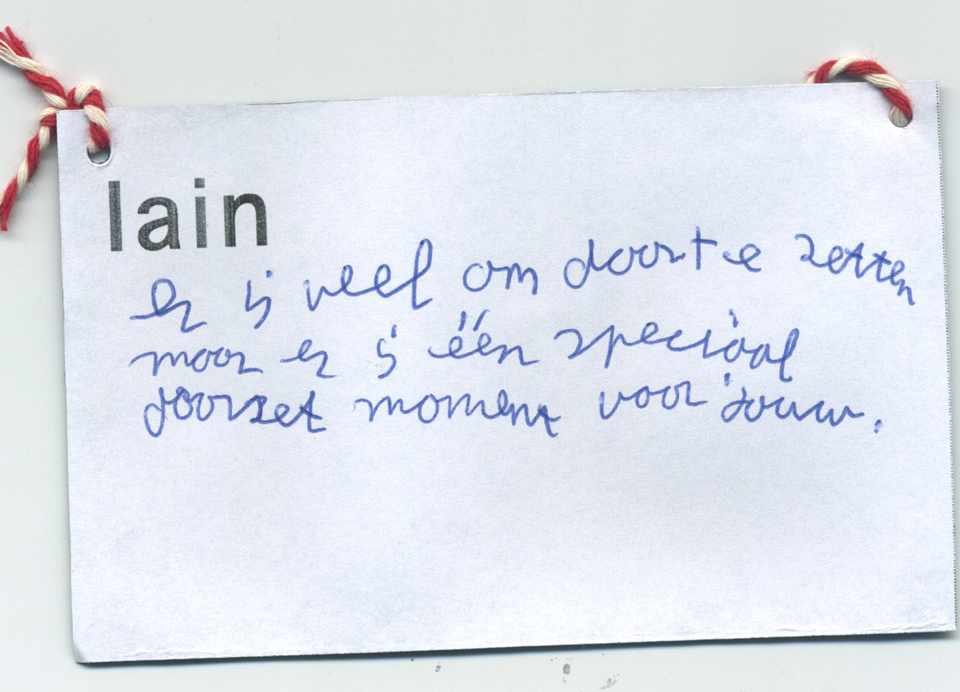 Iain
er is veel om door te zetten
maar er is één speciaal
doorzet moment voor jouw.